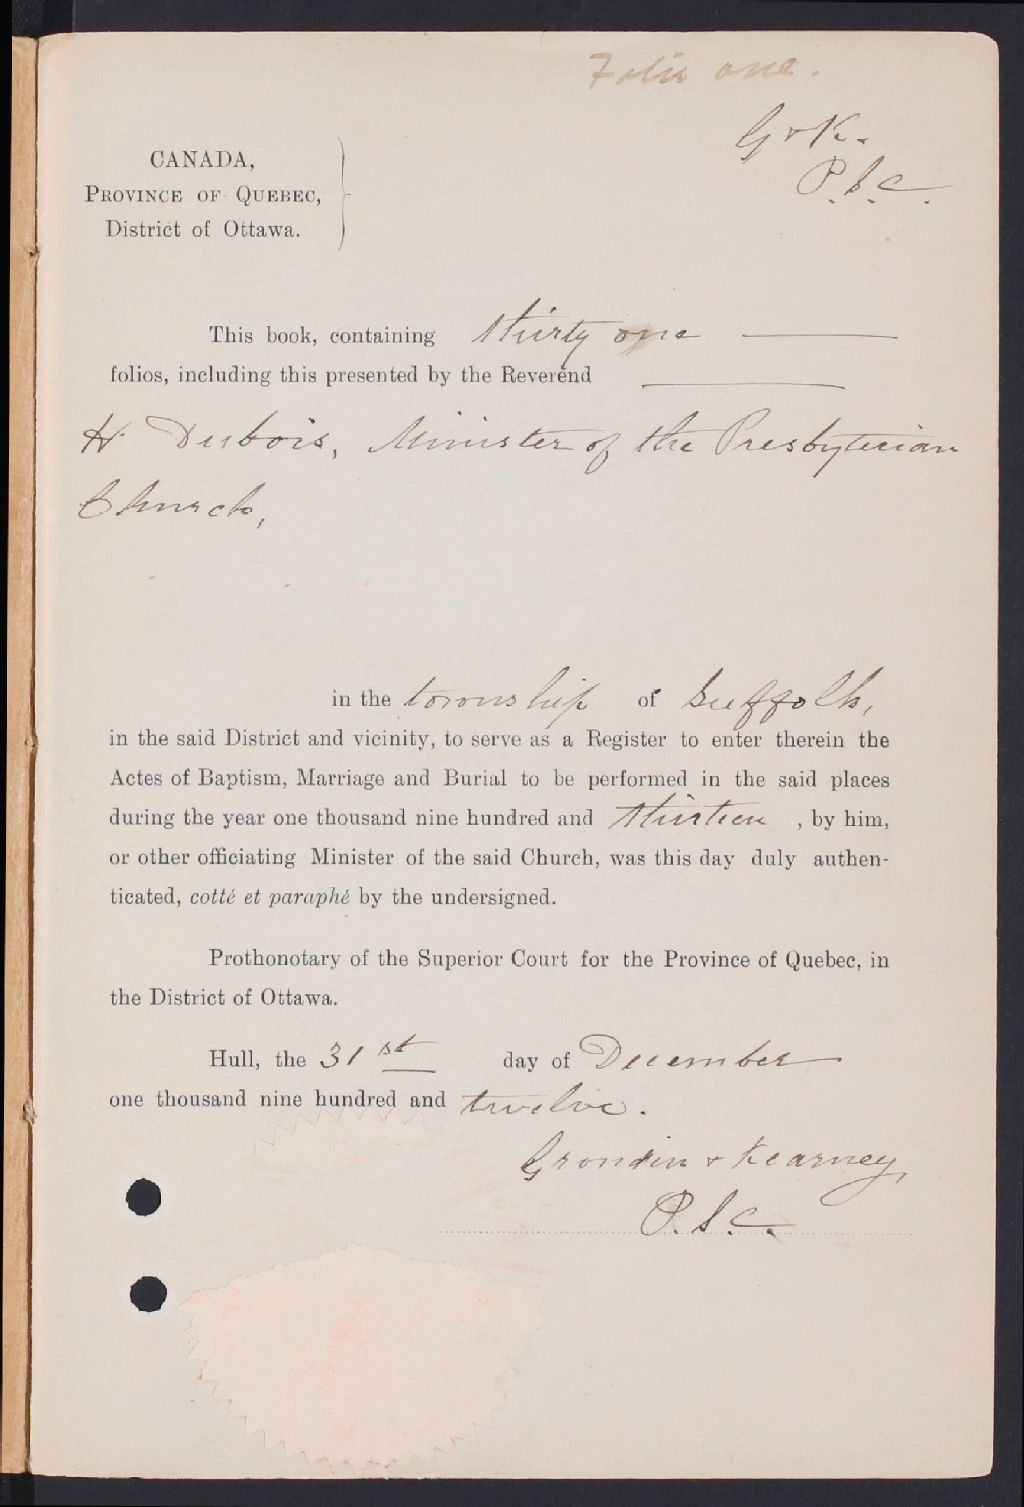 Folio one.
G & K.
P.S.C.
CANADA,
PROVINCE OF QUEBEC,
District of Ottawa.
This book, containing thirty one
folios, including this presented by the Reverend
H. Dubois, Minister of the Presbyterian
Church,
in the township of Suffolk,
in the said District and vicinity, to serve as a Register to enter therein the
Actes of Baptism, Marriage and Burial to be performed in the said places
during the year one thousand nine hundred and thirteen , by him,
or other officiating Minister of the said Church, was this day duly authen-
ticated, cotté et paraphé by the undersigned.
Prothonotary of the Superior Court for the Province of Quebec, in
the District of Ottawa.
Hull, the 31st day of December
one thousand nine hundred and twelve.
Grondin & Kearney,
P.S.C.